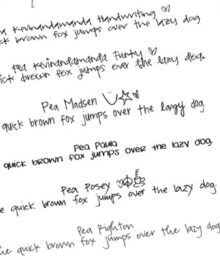 Pea Kevinandamanda Handwriting
ck brown fox jumps over the lazy dog
Pea Kevinandamanda Funky
ick brown fox jumps over the lazy dog.
Pea Madsen
quick brown fox jumps over the lazy dog
Pea Paula
quick brown fox jumps over the lazy dog.
Pea Posey
e quick brown fox jumps over the lazy dog.
Pea Righton
he quick brown fox jumps over the lazy dog